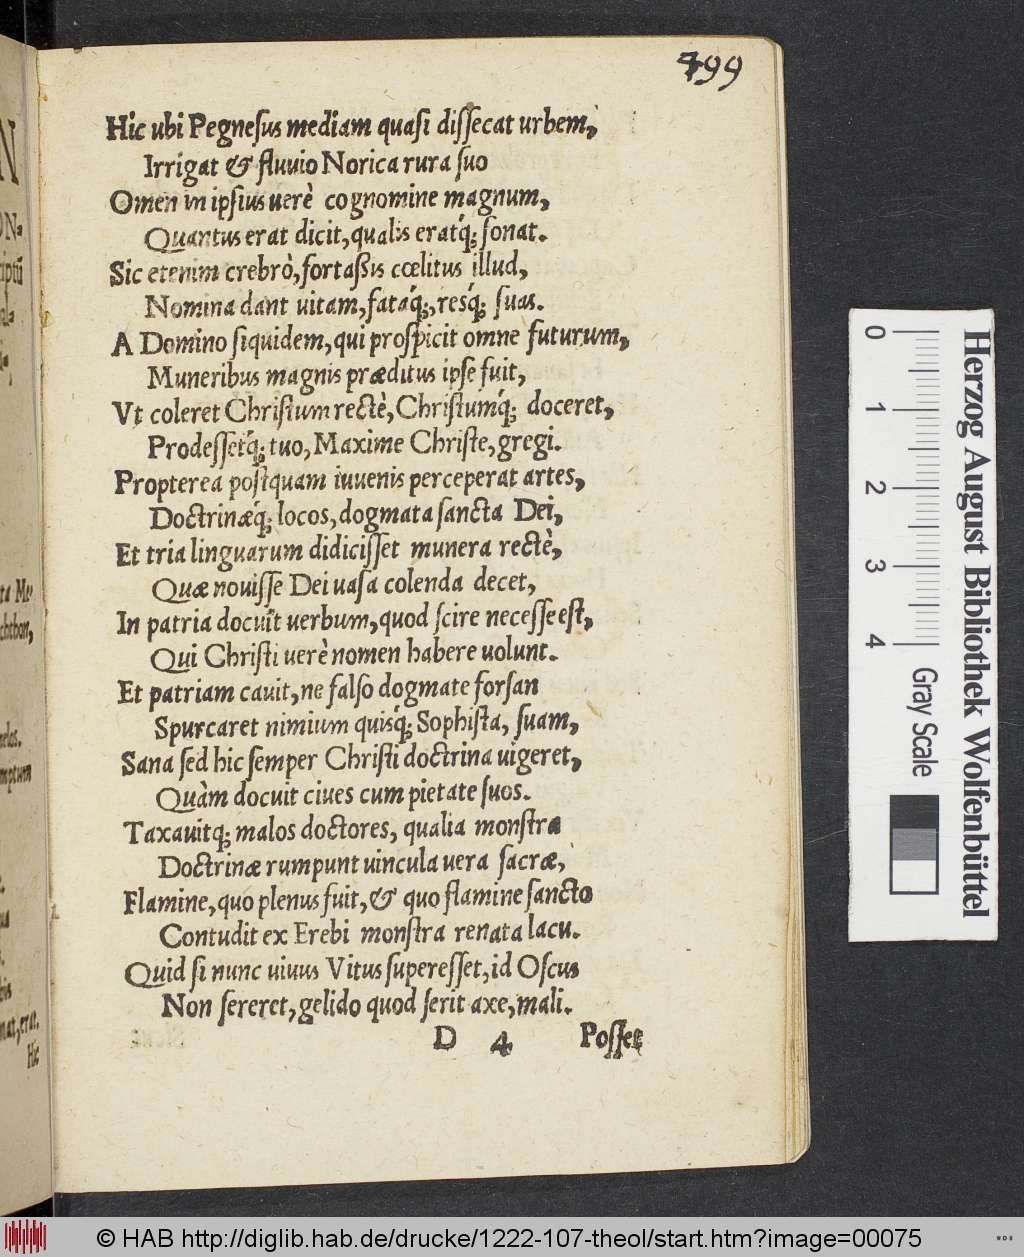 499
Hic ubi Pegnesus mediam quasi dissecat urbem,
Irrigat & fluuio Norica rura suo
Omen in ipsius uerè cognomine magnum,
Quantus erat dicit, qualis eratq́; sonat.
Sic etenim crebrò, fortaßis cœlitus illud,
Nomina dant uitam, fataq́;, resq́; suas.
A Domino siquidem, qui prospicit omne futurum,
Muneribus magnis præditus ipse fuit,
Vt coleret Christum rectè, Christumq́; doceret,
Prodessetq́; tuo, Maxime Christe, gregi.
Propterea postquam iuuenis perceperat artes,
Doctrinæq́; locos, dogmata sancta Dei,
Et tria linguarum didicisset munera rectè,
Quæ nouisse Dei uasa colenda decet,
In patria docuit uerbum, quod scire necesse est,
Qui Christi uerè nomen habere uolunt.
Et patriam cauit, ne falso dogmate forsan
Spurcaret nimium quisq́; Sophista, suam,
Sana sed hic semper Christi doctrina uigeret,
Quàm docuit ciues cum pietate suos.
Taxauitq́; malos doctores, qualia monstra
Doctrinæ rumpunt uincula uera sacræ,
Flamine, quo plenus fuit, & quo flamine sancto
Contudit ex Erebi monstra renata lacu.
Quid si nunc uiuus Vitus superesset, id Oscus
Non sereret, gelido quod serit axe, mali.
D 4 Posset
Herzog August Bibliothek Wolfenbüttel
0 1 2 3 4
Gray Scale
© HAB http://diglib.hab.de/drucke/1222-107-theol/start.htm?image=00075